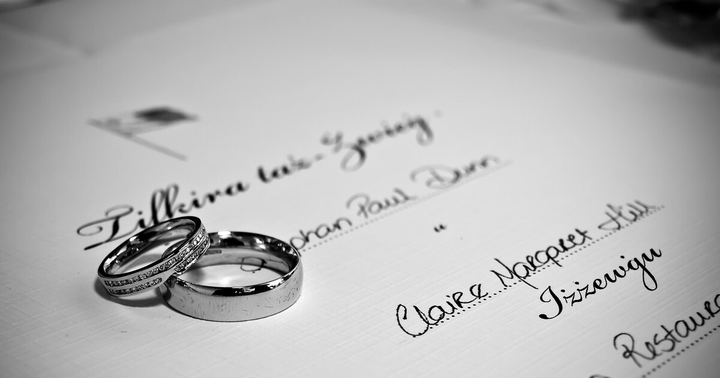 Tifkira taż-Żwieġ
ohan Paul Dunn
"
Claire Margaret Hill
Iżżewġu
Restaura